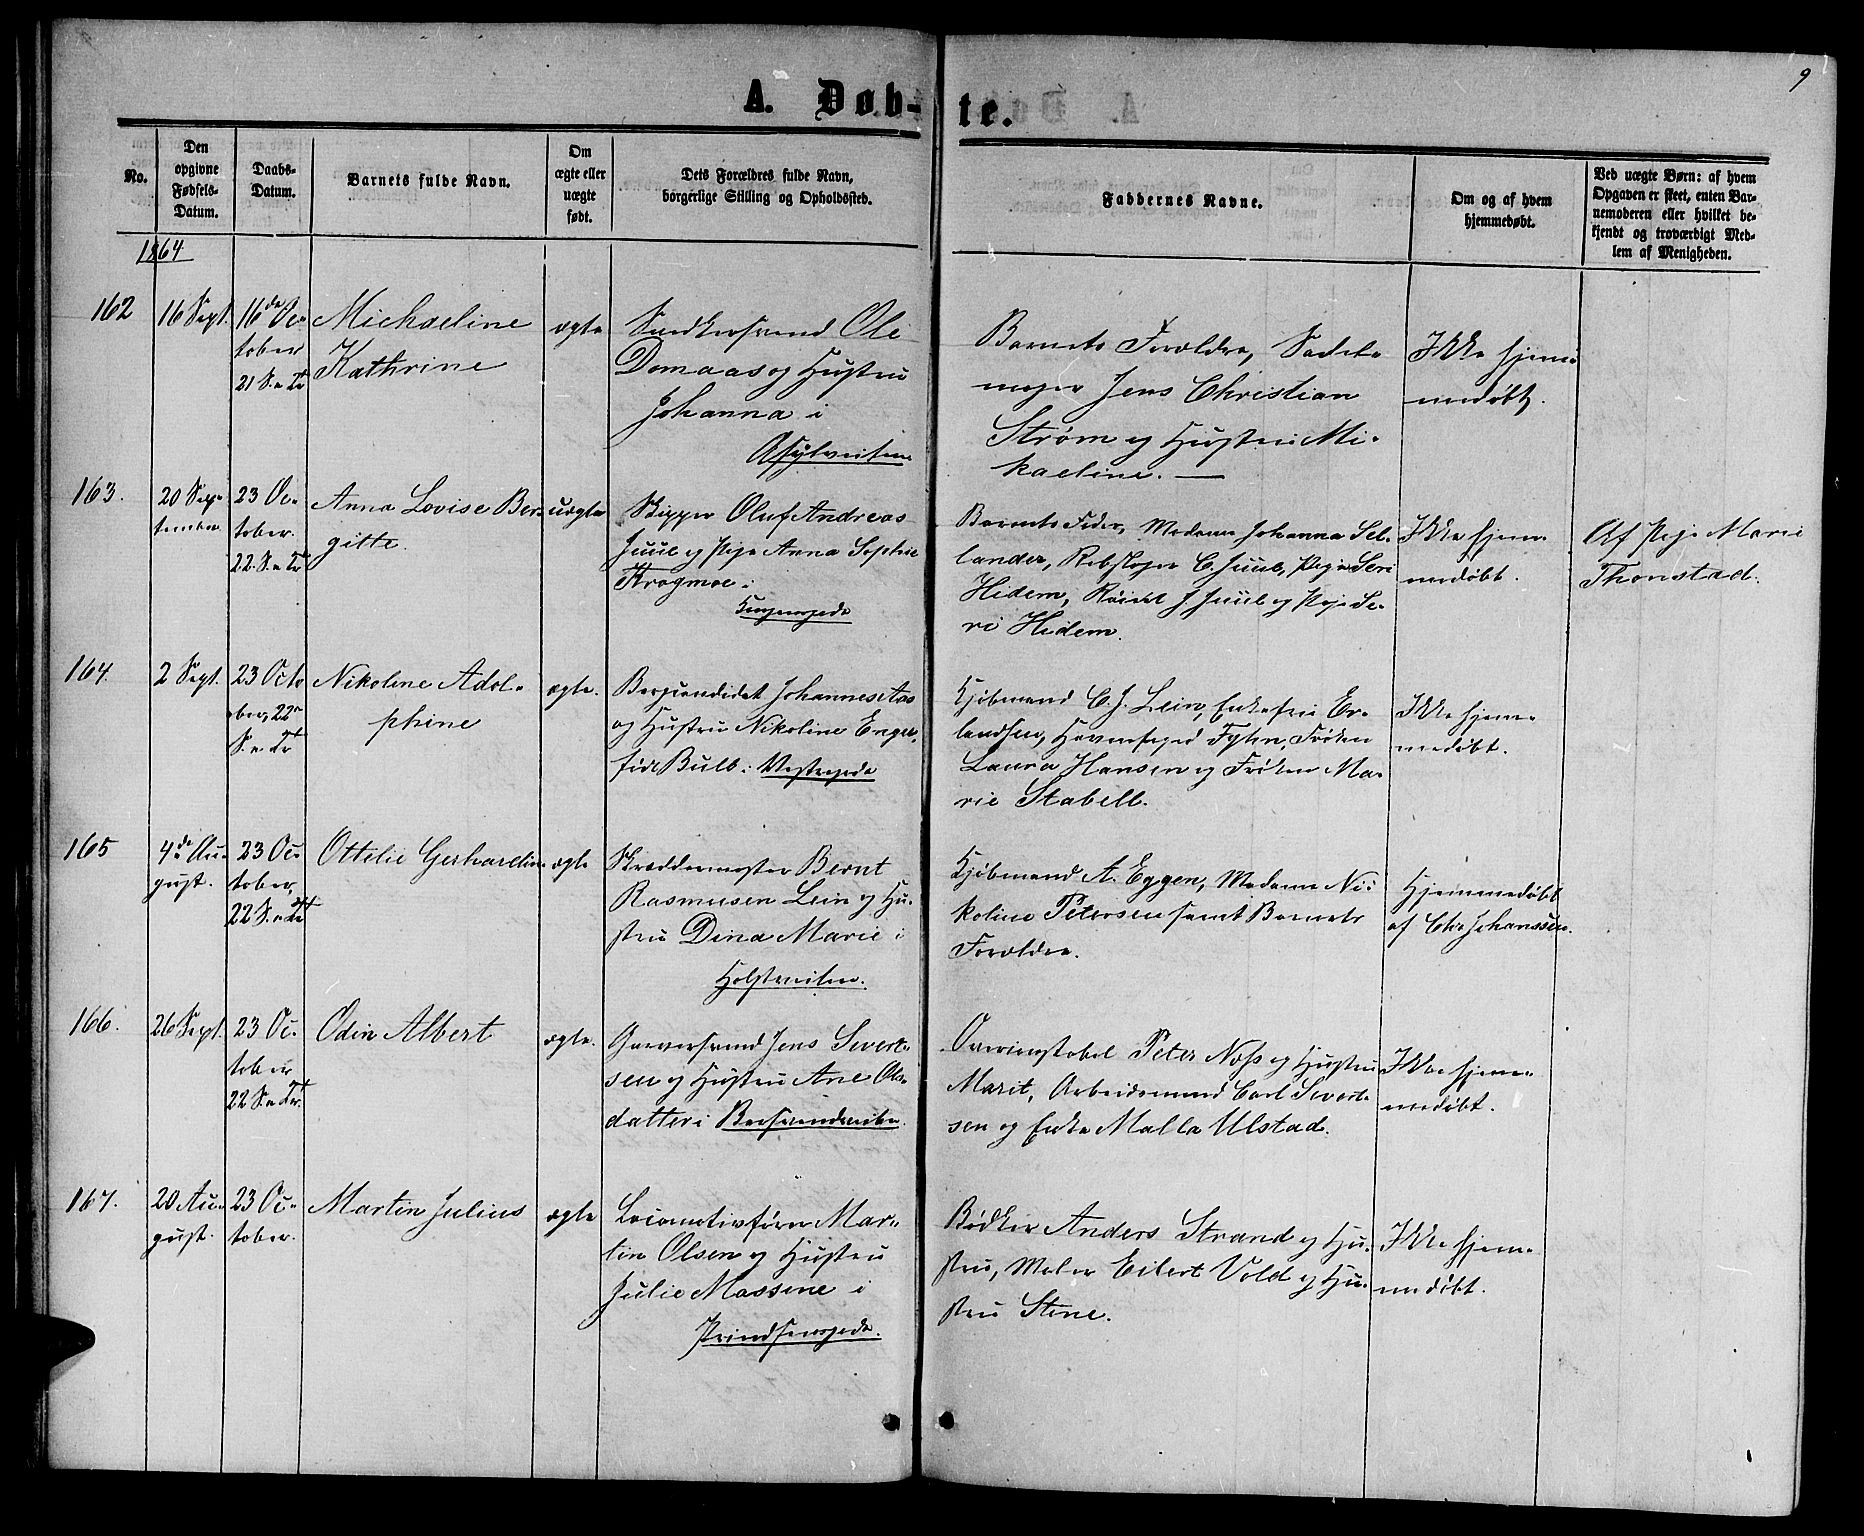 9
A. Døb-te.
No.
Den opgivne Fødsels-Datum.
Daabs-Datum.
Barnets fulde Navn.
Om ægte eller uægte født.
Dets Forældres fulde Navn, borgerlige Stilling og Opholdssted.
Faddernes Navne.
Om og af hvem hjemmedøbt.
Ved uægte Børn: af hvem Opgaven er skeet, enten Barnemoderen eller hvilket bekjendt og troværdigt Medlem af Menigheden.
1864
162
16 Sept.
16de Oc-
tober
21 S. e. Tr
Michaeline
Kathrine
ægte
Snedkersvend Ole
Domaas og Hustru
Johanna i
Asylveiten
Barnets Forældre, Sadel-
mager Jens Christian
Strøm og Hustru Mi-
kaeline. —
Ikke hjem-
medøbt.
163.
20 Sep-
tember
23 Oc-
tober.
22. S. e Tr
Anna Lovise Ber-
gitte.
uægte
Skipper Oluf Andreas
Juul og Pige Anna Sophie
Krogmoe i
Kongensgade
Barnets Fader, Madame Johanna Sel-
lander, Rebslager C. Juul, Pige Seri
Hidem, J Juul og Pige Se-
ri Hidem.
Ikke hjem-
medøbt.
Af Pige Marie
Thonstad.
164.
2 Sept.
23 Octo
ber, 22
S. e. Tr
Nikoline Adol-
phine
ægte.
Johannes Aas
og Hustru Nikoline Enger
Bull i Vestregade
Kjøbmand C. J. Lein, Enkefru Er-
landsen, Fylin, Frøken
Laura Hansen og Frøken Ma-
rie Stabell.
Ikke hjem-
medøbt.
165
4de Au-
gust.
23 Oc-
tober,
22 S. e Tr
Ottelie Gerhardine
ægte
Skræddermester Bernt
Rasmusen Lein og Hu-
stru Dina Marie i
Holstveiten.
Kjøbmand A. Eggen, Madame Ni-
koline Petersen samt Barnets
Forældre.
Hjemmedøbt
af Chr Johanssen.
166.
26 Sept.
23 Oc-
tober
22 S. e Tr.
Odin Albert
ægte.
Garversvend Jens Sivert-
sen og Hustru Ane Ols-
datter i
Peter Næss og Hustru
Marit, Arbeidsmand Carl Sivert-
sen og Enke Malla Ulstad.
Ikke hjem-
medøbt.
167.
20 Au-
gust.
23 Oc-
tober.
Martin Julius
ægte
Locomotivfører Mar-
tin Olsen og Hustru
Julie Massine i
Prindsensgade.
Bødker Anders Strand og Hu-
stru, Maler Eilert Vold og Hu-
stru Stine.
Ikke hjem-
medøbt.